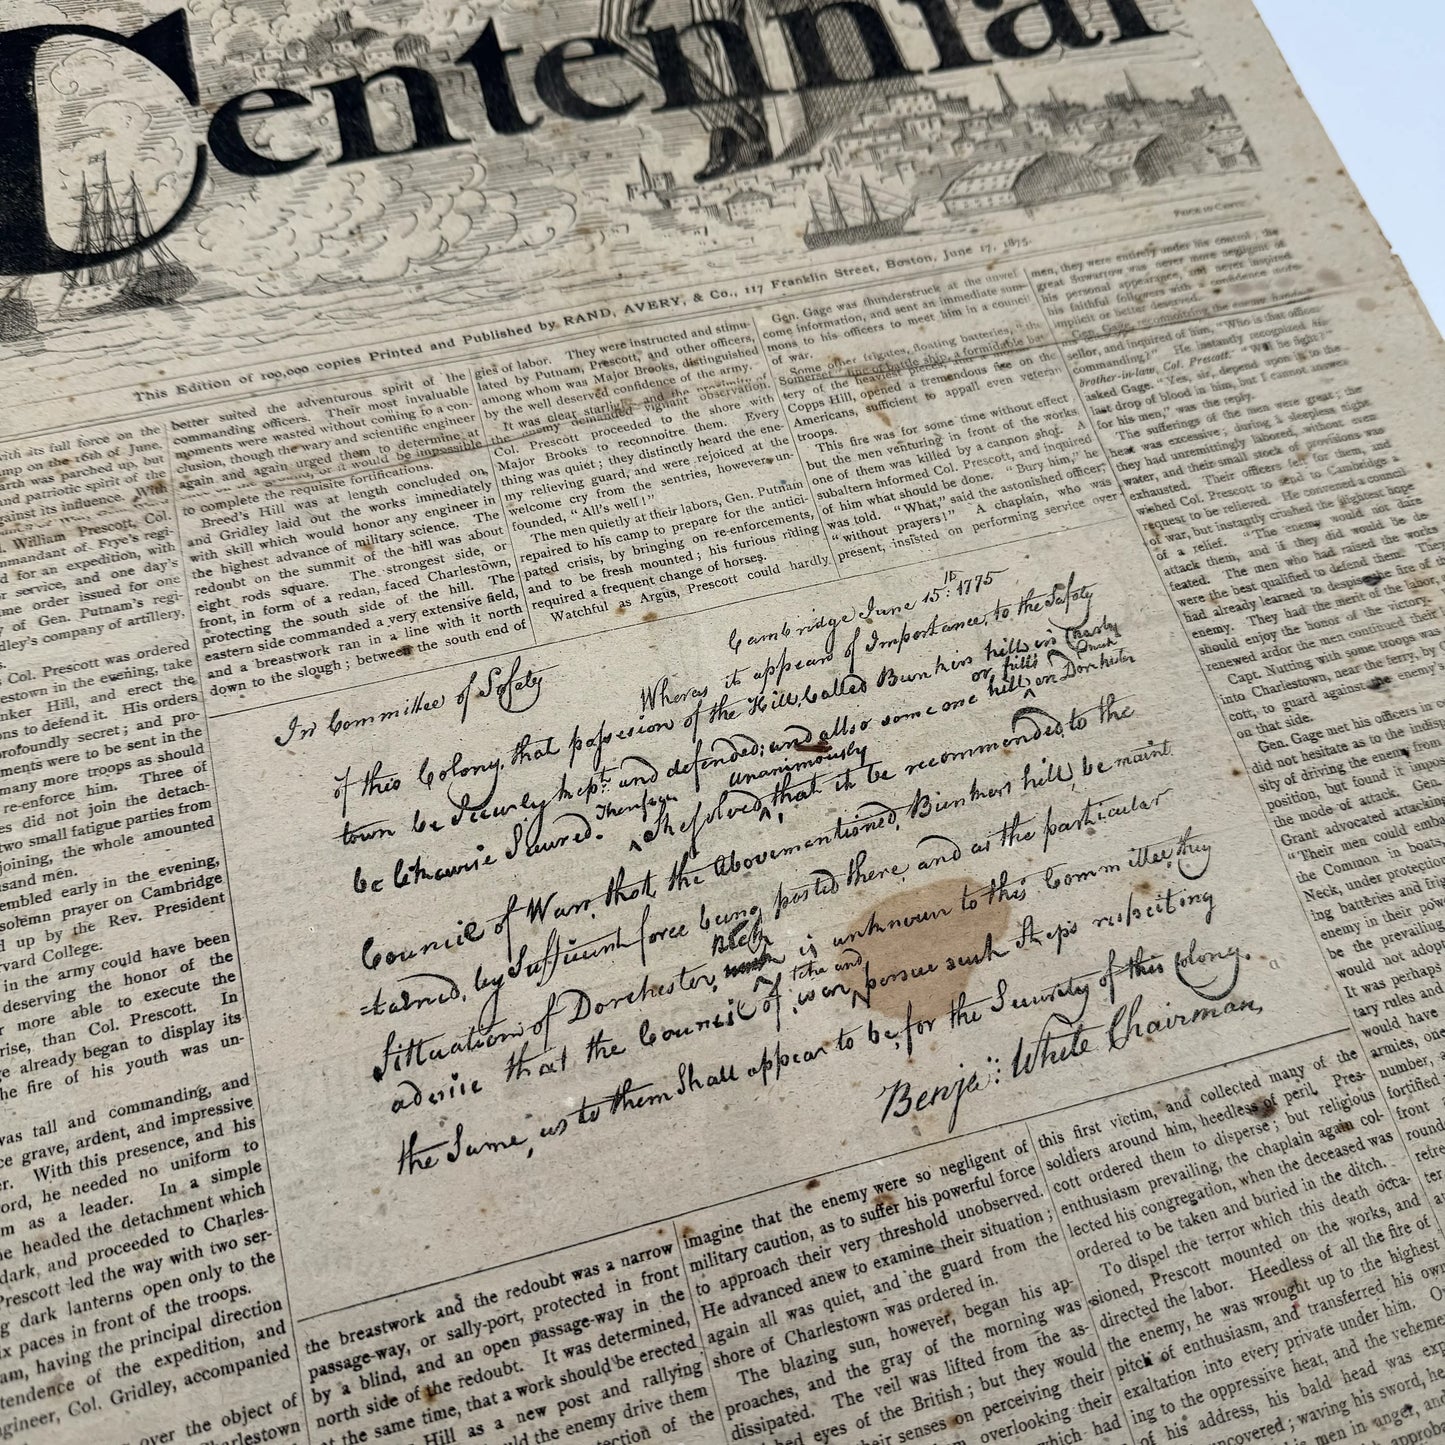 Centennial
PRICE 10 CENTS.
This Edition of 100,000 copies Printed and Published by RAND, AVERY, & Co., 117 Franklin Street, Boston, June 17, 1875.
with its full force on the
mp on the 16th of June.
arth was parched up, but
and patriotic spirit of the
gainst its influence. With
William Prescott, Col.
mmandant of Frye's regi-
d for an expedition, with
r service, and one day's
me order issued for one
y of Gen. Putnam's regi-
dley's company of artillery,
s.
Col. Prescott was ordered
estown in the evening, take
nker Hill, and erect the
ons to defend it. His orders
profoundly secret; and pro-
ments were to be sent in the
many more troops as should
re-enforce him. Three of
es did not join the detach-
two small fatigue parties from
joining, the whole amounted
usand men.
embled early in the evening,
solemn prayer on Cambridge
d up by the Rev. President
rvard College.
in the army could have been
deserving the honor of the
r more able to execute the
rise, than Col. Prescott. In
ge already began to display its
he fire of his youth was un-
was tall and commanding, and
ce grave, ardent, and impressive
er. With this presence, and his
ord, he needed no uniform to
m as a leader. In a simple
he headed the detachment which
dark, and proceeded to Charles-
Prescott led the way with two ser-
g dark lanterns open only to the
ix paces in front of the troops.
am, having the principal direction
tendence of the expedition, and
ngineer, Col. Gridley, accompanied
over the object of
Charlestown
better suited the adventurous spirit of the
commanding officers. Their most invaluable
moments were wasted without coming to a con-
clusion, though the wary and scientific engineer
again and again urged them to determine at
or it would be impossible
to complete the requisite fortifications.
Breed's Hill was at length concluded on,
and Gridley laid out the works immediately
with skill which would honor any engineer in
the highest advance of military science. The
redoubt on the summit of the hill was about
eight rods square. The strongest side, or
front, in form of a redan, faced Charlestown,
protecting the south side of the hill. The
eastern side commanded a very extensive field,
and a breastwork ran in a line with it north
down to the slough; between the south end of
gies of labor. They were instructed and stimu-
lated by Putnam, Prescott, and other officers,
among whom was Major Brooks, distinguished
by the well deserved confidence of the army.
It was clear starlight, and the proximity of
the enemy demanded vigilant observation.
Col. Prescott proceeded to the shore with
Major Brooks to reconnoitre them. Every
thing was quiet; they distinctly heard the ene-
my relieving guard, and were rejoiced at the
welcome cry from the sentries, however, un-
founded, "All's well!"
The men quietly at their labors, Gen. Putnam
repaired to his camp to prepare for the antici-
pated crisis, by bringing on re-enforcements,
and to be fresh mounted; his furious riding
required a frequent change of horses.
Watchful as Argus, Prescott could hardly
Gen. Gage was thunderstruck at the unwel
come information, and sent an immediate sum-
mons to his officers to meet him in a council
of war.
Some other frigates, floating batteries, "the
Somerset" line of battle ship, a formidable bat
tery of the heaviest pieces, and a
Copps Hill, opened a tremendous fire on the
Americans, sufficient to appall even veteran
troops.
This fire was for some time without effect,
but the men venturing in front of the works,
one of them was killed by a cannon shot. A
subaltern informed Col. Prescott, and inquired
of him what should be done. "Bury him," he
was told. "What," said the astonished officer,
"without prayers!" A chaplain, who was
present, insisted on performing service over
men, they were entirely under his control; the
great Suwarrow was never more negligent of
his personal appearance, and never inspired
his faithful followers with a confidence more
implicit or better deserved.
Gen. Gage, reconnoitring the enemy, handed
sellor, and inquired of him, "Who is that officer
commanding?" He instantly recognized his
brother-in-law, Col. Prescott. "Will he fight?"
asked Gage. "Yes, sir, depend upon it to the
last drop of blood in him, but I cannot answer
for his men," was the reply.
The sufferings of the men were great; the
heat was excessive; during a sleepless night
they had unremittingly labored, without even
water, and their small stock of provisions was
exhausted. Their officers felt for them, and
wished Col. Prescott to send to Cambridge a
request to be relieved. He convened a council
of war, but instantly crushed the slightest hope
of a relief. "The enemy would not dare
attack them, and if they did would be de-
feated. The men who had raised the works
were the best qualified to defend them. They
had already learned to despise the fire of the
enemy. They had the merit of the labor,
should enjoy the honor of the victory.
renewed ardor the men continued their
Capt. Nutting with some troops was
into Charlestown, near the ferry, by C
cott, to guard against the enemy's
on that side.
Gen. Gage met his officers in co
did not hesitate as to the indisp
sity of driving the enemy from
position, but found it impos
the mode of attack. Gen.
Grant advocated attacking
"Their men could emba
the Common in boats,
Neck, under protection
ing batteries and frig
enemy in their pow
be the prevailing
would not adop
It was perhaps
tary rules and
would have
armies, one
number, a
fortified
front
round
retre
ter
Cambridge June 15th: 1775
In Committee of Safety
Whereas it appears of Importance, to the Safety
of this Colony, that possession of the Hill, Called Bunkers hill in Charls
or hills
town be Securely kept, and defended; and allso some one hill on Dorchester
unanimously
be likewise Secured. Therefore Resolved, that it be recommended, to the
Council of Warr, that, the Abovementioned, Bunkers hill, be maint
=tained, by Sufficient force being posted there, and as the particular
Sittuation of Dorchester Neck is unknown to this Committee, they
take and
advise that the Council of warr pursue such Steps respecting
the Same, as to them Shall appear to be, for the Security of this Colony.
Benja: White Chairman,
the breastwork and the redoubt was a narrow
passage-way, or sally-port, protected in front
by a blind, and an open passage-way in the
north side of the redoubt. It was determined,
at the same time, that a work should be erected
Hill as a new post and rallying
ld the enemy drive them
tection of the
imagine that the enemy were so negligent of
military caution, as to suffer his powerful force
to approach their very threshold unobserved.
He advanced anew to examine their situation;
again all was quiet, and the guard from the
shore of Charlestown was ordered in.
The blazing sun, however, began his ap-
proaches, and the gray of the morning was
dissipated. The veil was lifted from the as-
hed eyes of the British; but they would
heir senses on perceiving their
overlooking their
which had
this first victim, and collected many of the
soldiers around him, heedless of peril. Pres-
cott ordered them to disperse; but religious
enthusiasm prevailing, the chaplain again col-
lected his congregation, when the deceased was
ordered to be taken and buried in the ditch.
To dispel the terror which this death occa-
sioned, Prescott mounted on the works, and
directed the labor. Heedless of all the fire of
the enemy, he was wrought up to the highest
pitch of enthusiasm, and transferred his own
exaltation into every private under him. O
ing to the oppressive heat, and the veheme
of his address, his bald head was exp
uncovered; waving his sword, he
men in anger, and
approba